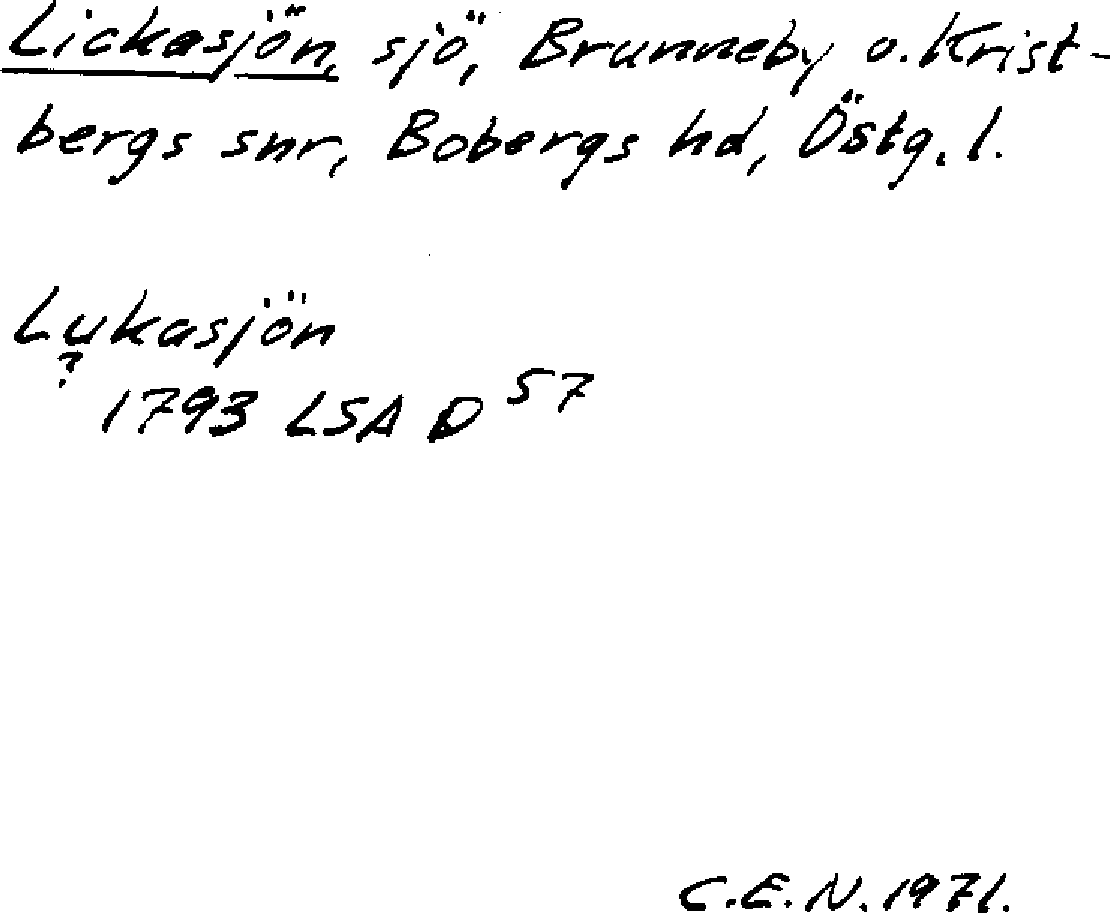 Lickasjön, sjö, Brunneby o. Krist-
bergs snr, Bobergs hd, Östg. l.
Lukasjön
?
1793 LSA D 57
C.E.N. 1971.